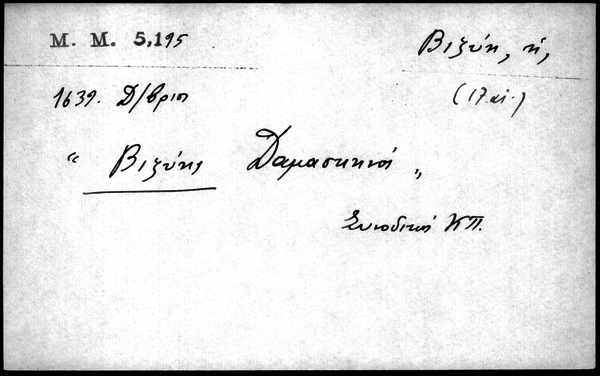 M. M. 5,195
Βιζύη, ἡ,
1639. Δ/βριος
(17 αἰ.)
"Βιζύης Δαμασκηνός"
Συνοδικοί ΚΠ.